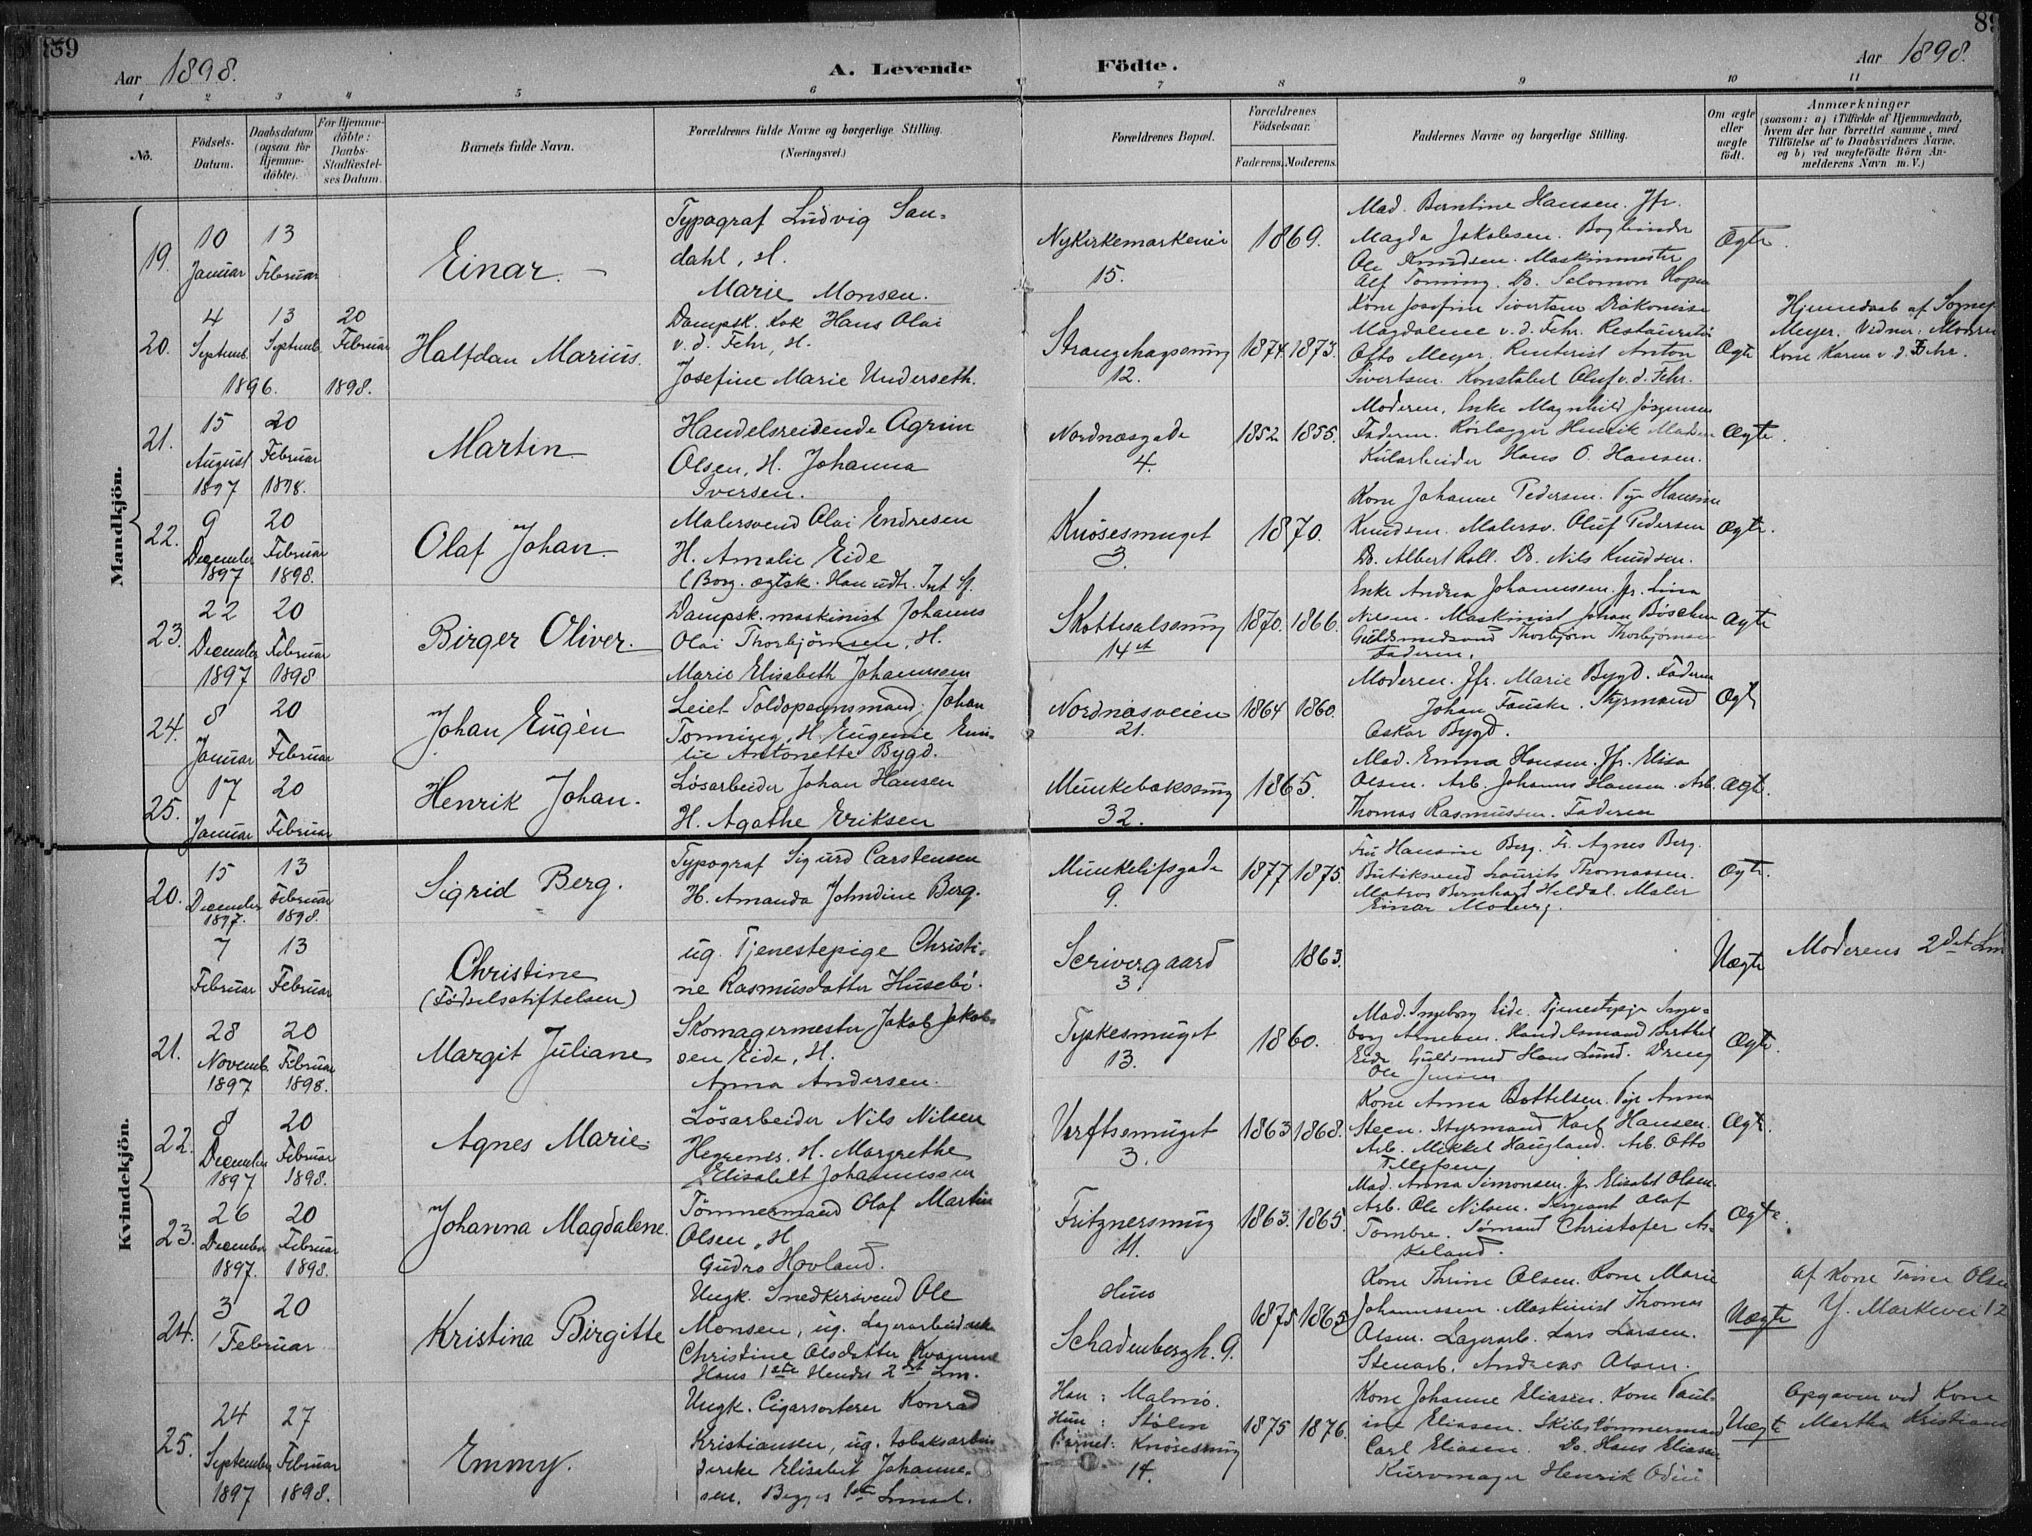 89
89
Aar 1898.
A. Levende Födte.
Aar 1898.
1 2 3 4 5 6 7 8 9 10 11
No.
Födsels-Datum.
Daabsdatum (ogsaa for Hjemme-döbte).
For Hjemme-döbte: Daabs-Stadfæstel-ses Datum.
Barnets fulde Navn.
Forældrenes fulde Navne og borgerlige Stilling.
(Næringsvei.)
Forældrenes Bopæl.
Forældrenes Födselsaar.
Faderens. Moderens.
Faddernes Navne og borgerlige Stilling.
Om ægte eller uægte födt.
Anmærkninger
(saasom: a) i Tilfælde af Hjemmedaab, hvem der har forrettet samme, med Tilföielse af to Daabsvidners Navne. og b) ved uægtefödte Börn An-melderens Navn m. V.)
Mandkjön.
19.
10 Januar
13 Februar
Einar.
Typograf Ludvig San-
dahl, H.
Marie Monsen.
Nykirkemarkevei
15.
1869.
Mad. Berntine Hansen. Jfr.
Magda Jakobsen. Bogbinder
Ole Knudsen. Maskinmester
Alf Tonning. Do. Salomon
Ægte.
20.
4 Septemb.
13 Septemb.
1896.
20 Februar
1898.
Halfdan Marius.
Dampsk. Kok Hans Olai
v. d. Fehr, H.
Josefine Marie Underseth.
Strangehagesmug
12.
1874. 1873.
Kone Josefine Sivertsen Diakonisse
Magdalene v. d. Fehr. Restauratør
Otto Meyer. Renterist Anton
Sivertsen. Konstabel Oluf v. d. Fehr.
Ægte
Hjemmedaab af Sognep.
Meyer. Vidner: Moderen
Kone Karen v. d. Fehr.
21.
15 August 1897
20 Februar 1898.
Martin
Handelsreisende Agrim
Olsen, H. Johanna
Iversen.
Nordnæsgade
4.
1852 1855.
Moderen. Enke Magnhild Jørgensen
Faderen. Rørlægger Henrik Madsen
Kularbeider Hans O. Hansen.
Ægte.
22.
9 December 1897
20 Februar 1898.
Olaf Johan.
Malersvend Olai Endresen
H. Amalie Eide
(Borg. ægtsk. Han udtr.
Knøsesmuget
3.
1870.
Kone Johanne Pedersen. Pige Hansine
Knudsen. Malersv. Oluf Pedersen
Do. Albert Roll. Do. Nils Knudsen.
Ægte.
23.
22 December 1897
20 Februar 1898
Birger Oliver.
Dampsk. maskinist Johannes
Olai Thorbjørnsen, H.
Marie Elisabeth Johannessen
Skottesalsmug
14
1870. 1866.
Enke Andrea Johannessen. Jfr. Lina
Nilsen. Maskinist Johan
Guldsmedsvend Thorbjørn Thorbjørnsen
Faderen.
Ægte
24.
8 Januar
20 Februar
Johan Eugèn
Leiet Toldopsynsmand Johan
Tonning, H. Eugenie Emi-
lie Antonette Bygd.
Nordnæsveien
21.
1864 1860.
Moderen. Jfr. Marie Bygd. Faderen
Johan Fauske. Styrmand
Oskar Bygd.
Ægte
25.
17 Januar
20 Februar
Henrik Johan.
Løsarbeider Johan Hansen
H. Agathe Eriksen
Munkebæksmug
32.
1865.
Mad. Emma Hansen. Jfr. Elisa
Olsen. Arb. Johannes Hansen. Arb.
Thomas Rasmussen. Faderen
Ægte.
Kvindekjön.
20.
15 December 1897.
13 Februar 1898.
Sigrid Berg.
Typograf Sigurd Carstensen
H. Amanda Johndine Berg.
Munkelifsgade
9.
1877 1875.
Fru Hansine Berg. Fr. Agnes Berg.
Butiksvend Laurits Thomassen.
Matros Bernhard Heldal. Maler
Einar Moberg.
Ægte.
7 Februar
13 Februar
Christine
(Fødselsstiftelsen)
ug. Tjenestepige Christi-
ne Rasmusdatter Husebø.
Scrivergaard
3.
1863.
Uægte
Moderens 2det Lm
21.
28 Novemb. 1897
20 Februar 1898.
Margit Juliane
Skomagermester Jakob Jakob-
sen Eide, H.
Anna Andersen.
Tyskesmuget
13.
1860.
Mad. Ingeborg Eide. Tjenestepige Inge-
borg Arnesen. Handelsmand Berthel
Eide Guldsmed Hans Lund. Dreng
Ole Jensen
Ægte.
22.
8 December 1897
20 Februar 1898.
Agnes Marie.
Løsarbeider Nils Nilsen
Hegrenes, H. Margrethe
Elisabet Johannessen
Verftsmuget
3.
1863 1868.
Kone Anna Bottelsen. Pige Anna
Steen. Styrmand Karl Hansen.
Arb. Mikkel Haugland. Arb. Otto
Tellefsen
Ægte.
23.
26 December 1897.
20 Februar 1898.
Johanna Magdalene.
Tømmermand Olaf Martin
Olsen, H
Gudro Hovland.
Fritznersmug
11.
1863. 1865.
Mad. Anna Simonsen. Jfr. Elisabet Olsen.
Arb. Ole Nilsen. Sergeant Olaf
Tombre. Sømand Christofer As-
keland.
Ægte.
24.
3 Februar
20
Kristina Birgitte
Ungk. Snedkersvend Ole
Monsen, ug. Lagerarbeiderske
Christine Olsdatter Kvamme
Hans 1ste Hendes 2det Lm.
Huus
Schadenbergh. 9.
1875 1865
Kone Trine Olsen. Kone Marie
Johannessen. Maskinist Thomas
Olsen. Lagerarb. Lars Larsen.
Stenarb. Andreas Olsen.
Uægte
af Kone Trine Olsen
Y. Markevei 12
25.
24 September 1897
27 Februar 1898.
Emmy.
Ungk. Cigarsorterer Konrad
Kristiansen, ug. tobaksarbei-
derske Elisabet Johanne-
sen. Begges 1ste Lmaal.
Han: Malmø.
Hun: Stølen
Barnet: Knøsesmug
14.
1875 1876.
Kone Johanne Eliasen. Kone Paul-
ine Eliasen. Skibstømmermand
Carl Eliasen. Do. Hans Eliasen
Kurvmager Henrik
Uægte
Opgaven ved Kone
Martha Kristians